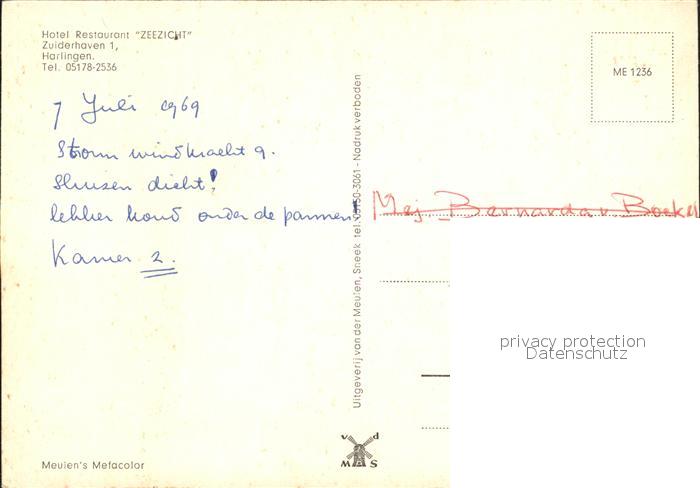 Hotel Restaurant "ZEEZICHT"
Zuiderhaven 1,
Harlingen.
Tel. 05178-2536
7 Juli 1969
Storm windkracht 9.
Sluizen dicht!
lekker koud onder de pannen!
Kamer 2.
Meulen's Metacolor
Uitgeverij van der Meulen, Sneek tel. 05150-3061 - Nadruk verboden
ME 1236
Mej. Bernarda v Boekel
privacy protection
Datenschutz
v d
M S